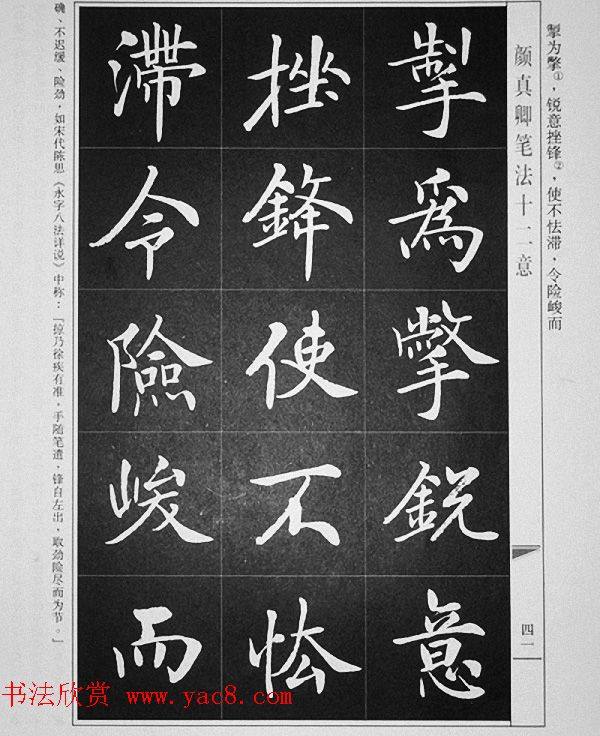 掣为擎①，锐意挫锋②，使不怯滞，令险峻而
颜真卿笔法十二意
四一
掣為擎銳意
挫鋒使不怯
滯令險峻而
确、不迟缓、险劲，如宋代陈思《永字八法详说》中称：「掠乃徐疾有准，手随笔遣，锋自左出，取劲险尽而为节。」
书法欣赏 www.yac8.com